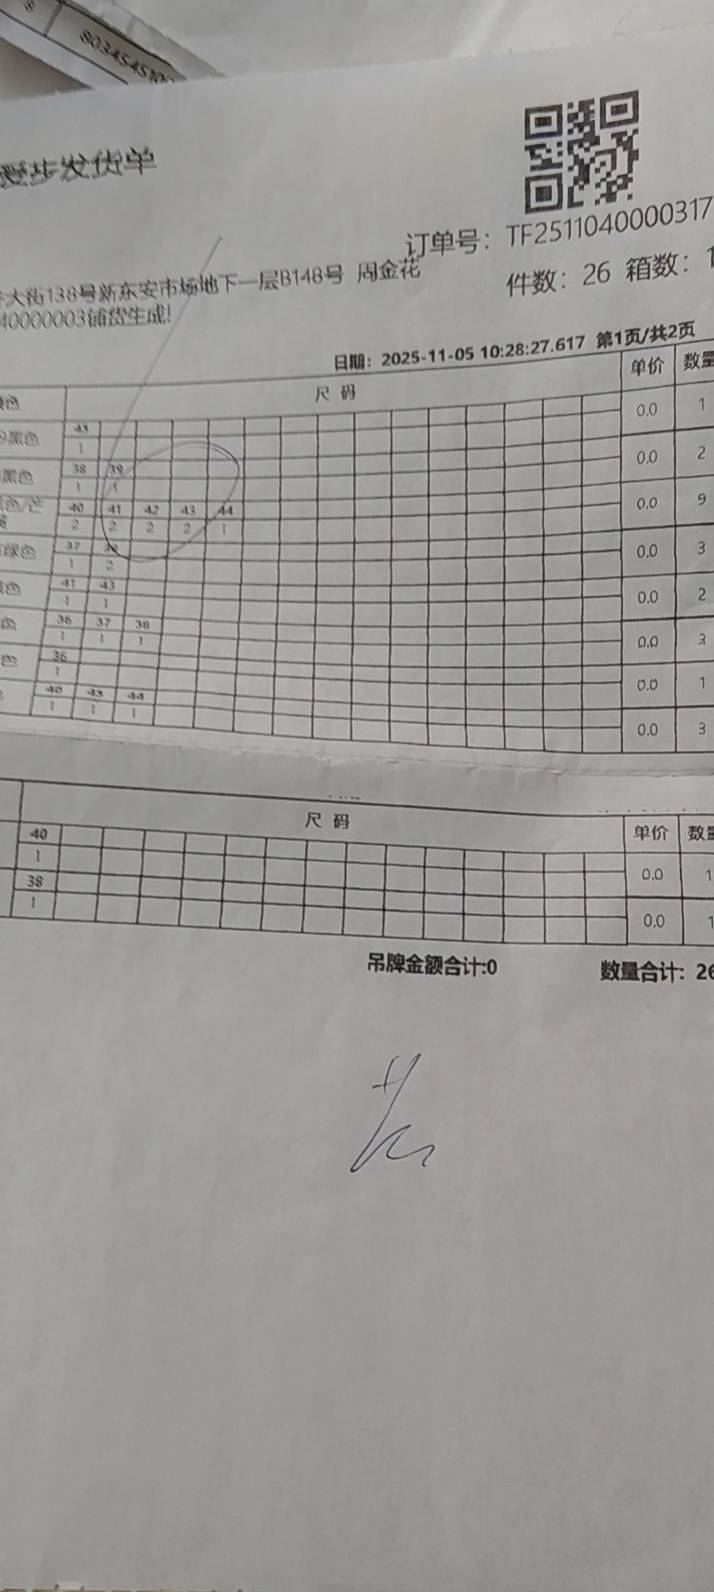 8
8034545100
爱步发货单
订单号：TF2511040000317
大街138号新东安市场地下一层B148号 周金花
件数：26 箱数：1
40000003铺货生成!
日期：2025-11-05 10:28:27.617 第1页/共2页
色 尺码 单价 数量
黑色 43 0.0 1
1
黑色 38 39 0.0 2
1 1
色/芒 40 41 42 43 44 0.0 9
2 2 2 2 1
绿色 37 38 0.0 3
1 2
色 41 43 0.0 2
1 1
色 36 37 38 0.0 3
1 1 1
色 36 0.0 1
1
40 43 44 0.0 3
1 1 1
尺码 单价 数量
40 0.0 1
1
38 0.0 1
1
吊牌金额合计:0 数量合计：26